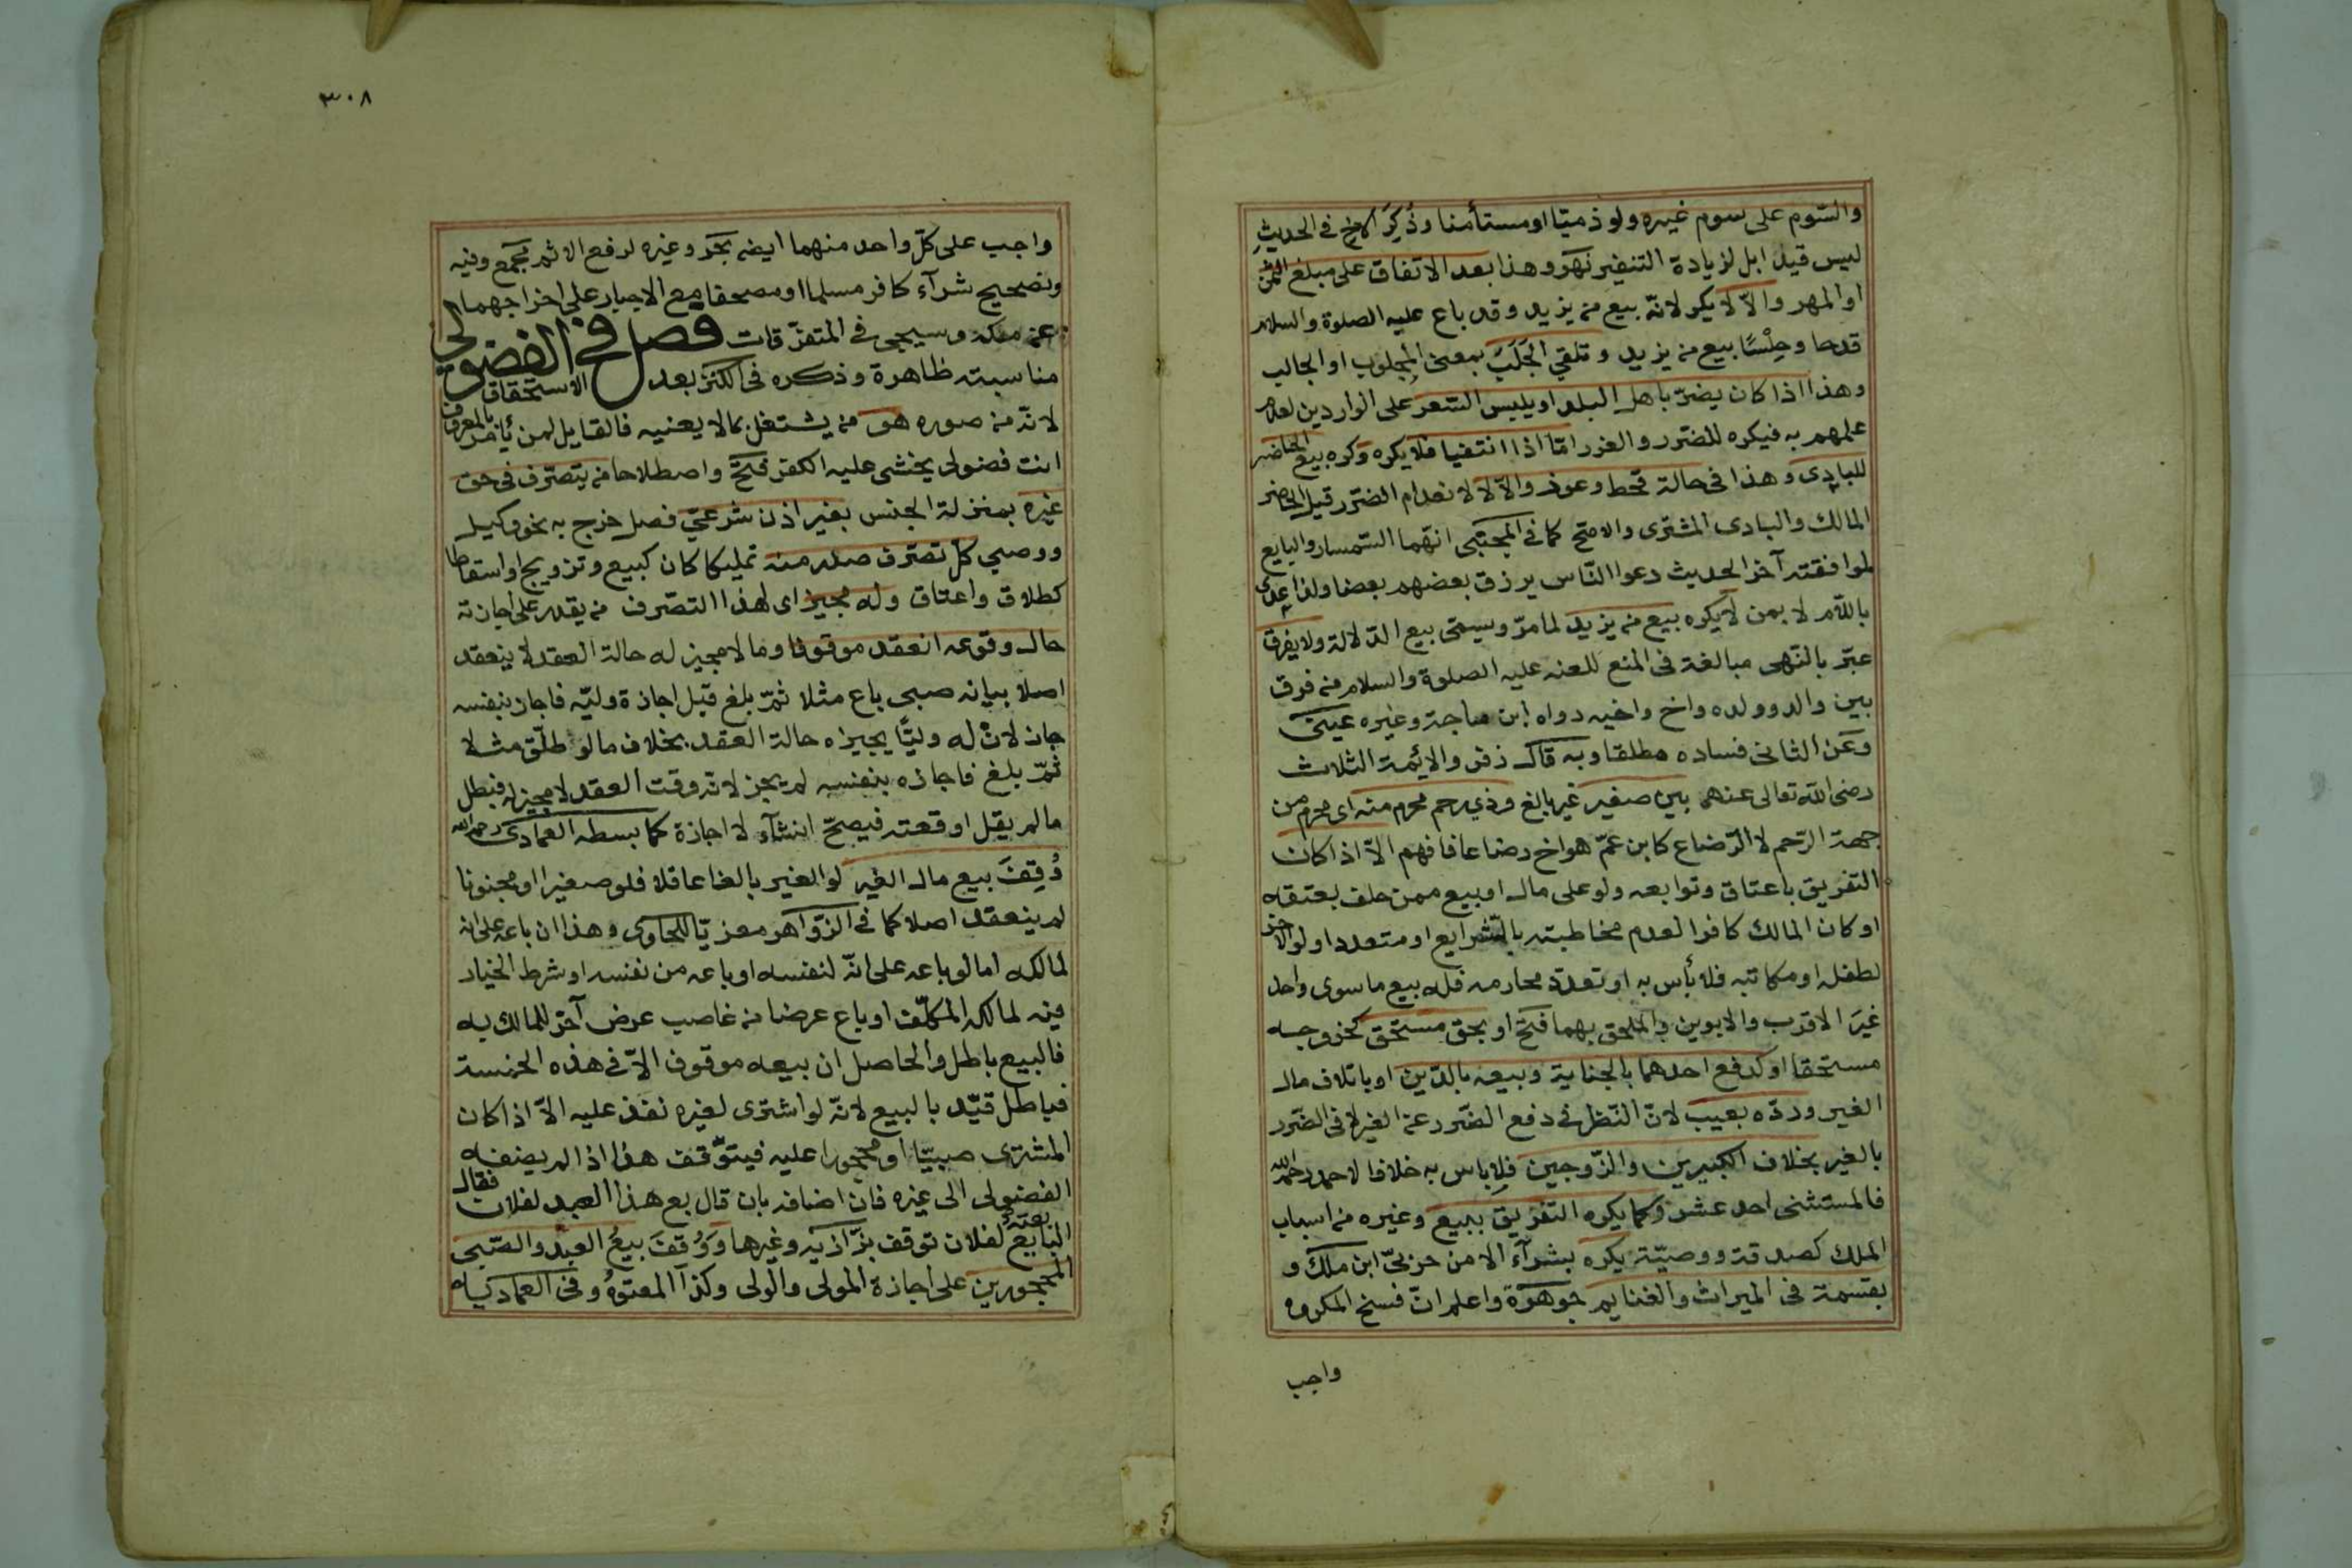 والسّوم على سوم غيره ولو ذميّا او مستأمنا وذُكِرَ الاخ في الحديثِ
ليس قيدا بل لزيادة التنفير نهر وهذا بعد الاتفاق على مبلغ الثمن
او المهر والاّ لا يكره لانّه بيع من يزيد وقد باع عليه الصلوة والسلام
قدحا وحِلْسًا بيع من يزيد وتلقي الجَلَبَ بمعنى المجلوب او الجالب
وهذا اذا كان يضرّ باهل البلد او يلبس السّعر على الواردين لعدم
علمهم به فيكره للضرر والغرر امّا اذا انتفيا فلا يكره وكره بيع الحاضر
للبادى وهذا فى حالة قحط وعوز والاّ لا لانعدام الضرر قيل الحاضر
المالك والبادى المشترى والاصح كما في المجتبى انهما السّمسار والبايع
لموافقته آخر الحديث دعوا النّاس يرزق بعضهم بعضا ولذا عدى
باللّام لا بمن لا يكره بيع من يزيد لما مرّ ويسمّى بيع الدّلالة ولا يفرق
عبّر بالنّهى مبالغة فى المنع للعنه عليه الصلوة والسلام من فرق
بين والد وولده واخ واخيه رواه ابن ماجة وغيره عينى
وعن الثانى فساده مطلقا وبه قال زفر والايمة الثلاث
رضى الله تعالى عنهم بين صغير غير بالغ وذي رحم محرم منه اى محرم من
جهة الرّحم لا الرّضاع كابن عمّ هو اخ رضاعا فافهم الاّ اذا كان
التفريق باعتاق وتوابعه ولو على مال او بيع ممن حلف بعتقه
او كان المالك كافرا لعدم مخاطبته بالشرايع او متعددا ولو الآخر
لطفله او مكاتبه فلا بأس به او تعدّد محارمه فله بيع ما سوى واحد
غيرَ الاقرب والابوين والملحق بهما فتح او بحق مستحق كخروجه
مستحقا او كدفع احدهما بالجناية وبيعه بالدّين او باتلاف مال
الغير وردّه بعيب لانّ النّظر في دفع الضّرر عن الغير لا فى الضّرر
بالغير بخلاف الكبيرين والزّوجين فلا باس به خلافا لاحمد رحمه الله
فالمستثنى احد عشر وكما يكره التفريق ببيع وغيره من اسباب
الملك كصدقة ووصيّة يكره بشرآء الا من حربىّ ابن ملك و
بقسمة فى الميراث والغنايم جوهرة واعلم انّ فسخ المكروه
واجب
٣٠٨
واجب على كلّ واحد منهما ايضا بحر وغيره لرفع الاثم مجمع وفيه
ونصحيح شرآء كافر مسلما او مصحفا مع الاجبار على اخراجهما
عن ملكه وسيجي في المتفرّقات فصل في الفضولي
مناسبته ظاهرة وذكره فى الكنز بعد الاستحقاق
لانّه من صوره هو من يشتغل بما لا يعنيه فالقايل لمن يأمر بالمعروف
انت فضولى يخشى عليه الكفر فتح واصطلاحا من يتصرّف فى حق
غيره بمنزلة الجنس بغير اذن شرعيّ فصل خرج به نحو وكيل
ووصى كلّ تصرّف صدر منه تمليكا كان كبيع وتزويج او اسقاطا
كطلاق واعتاق وله مجيز اى لهذا التصّرف من يقدر على اجازته
حال وقوعه انعقد موقوفا وما لا مجيز له حالة العقد لا ينعقد
اصلا بيانه صبى باع مثلا ثمّ بلغ قبل اجازة وليّه فاجاز بنفسه
جاز لانّ له وليًّا يجيزه حالة العقد بخلاف ما لو طلّق مثلا
ثمّ بلغ فاجازه بنفسه لم يجز لانّه وقت العقد لا مجيز له فبطل
ما لم يقل اوقعته فيصحّ انشآء لا اجازة كما بسطه العمادى رحمه الله
وُقِفَ بيع مال الغير لو الغير بالغا عاقلا فلو صغيرا او مجنونا
لم ينعقد اصلا كما في الزّواهر معزيّا للحاوى وهذا ان باعه على انه
لمالكه اما لو باعه على انّه لنفسه او باعه من نفسه او شرط الخيار
فيه لمالكه المكلّف او باع عرضا من غاصب عرض آخر للمالك به
فالبيع باطل والحاصل ان بيعه موقوف الاّ في هذه الخمسة
فباطل قيّد بالبيع لانّه لو اشترى لغيره نفذ عليه الاّ اذا كان
المشترى صبيّا او محجورا عليه فيتوّقف هذا اذا لم يضفه
الفضولى الى غيره فان اضافه بان قال بع هذا العبد لفلان فقال
البايع بعته لفلان توقف بزّازيه وغيرها وَوُقفَ بيعُ العبد والصّبى
المحجورين على اجازة المولى والولى وكذا المعتوهُ وفى العماديه